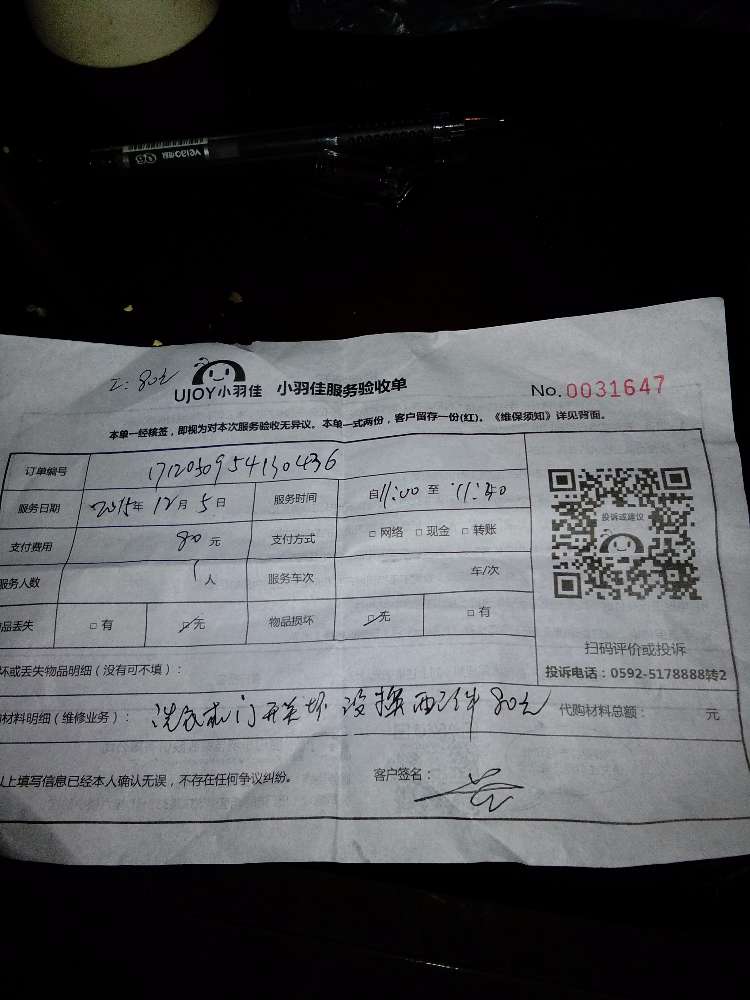 velobiov
工:80元
UJOY小羽佳 小羽佳服务验收单 No.0031647
本单一经核签，即视为对本次服务验收无异议。本单一式两份，客户留存一份(红)。《维保须知》详见背面。
订单编号 1712030954130436
服务日期 2015年 12月 5日 服务时间 自11:00 至 11:40
支付费用 80元 支付方式 □网络 □现金 □转账
服务人数 1人 服务车次 车/次
品丢失 □有 □无 物品损坏 □无 □有
坏或丢失物品明细（没有可不填）：
材料明细（维修业务）： 洗衣机门开关坏 没换配件 80元 代购材料总额： 元
以上填写信息已经本人确认无误，不存在任何争议纠纷。 客户签名：
投诉或建议
扫码评价或投诉
投诉电话：0592-5178888转2